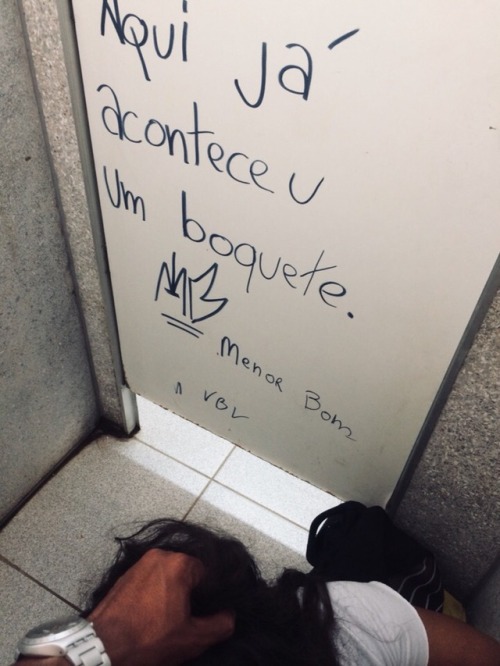 Aqui Já
aconteceu
um boquete.
MB
Menor Bom
VBL